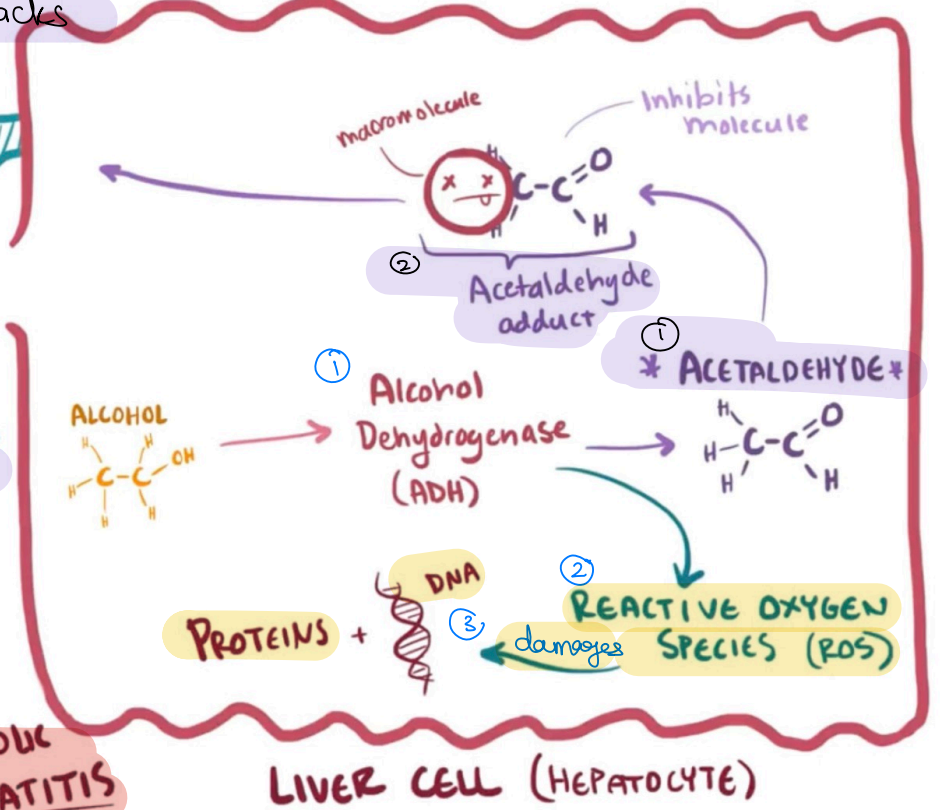 acks
macromolecule
Inhibits
molecule
H
C-C=O
H
H
②
Acetaldehyde
adduct
①
* ACETALDEHYDE *
①
Alcohol
Dehydrogenase
(ADH)
ALCOHOL
H H
H-C-C-OH
H H
H
H-C-C=O
H H
②
REACTIVE OXYGEN
SPECIES (ROS)
damages
③
DNA
PROTEINS +
OLIC
ATITIS
LIVER CELL (HEPATOCYTE)